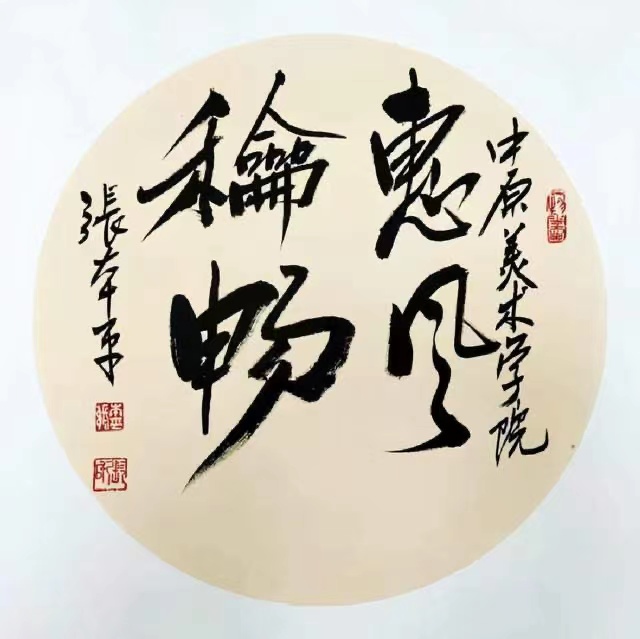 中原美术学院
惠风
龢畅
張本平